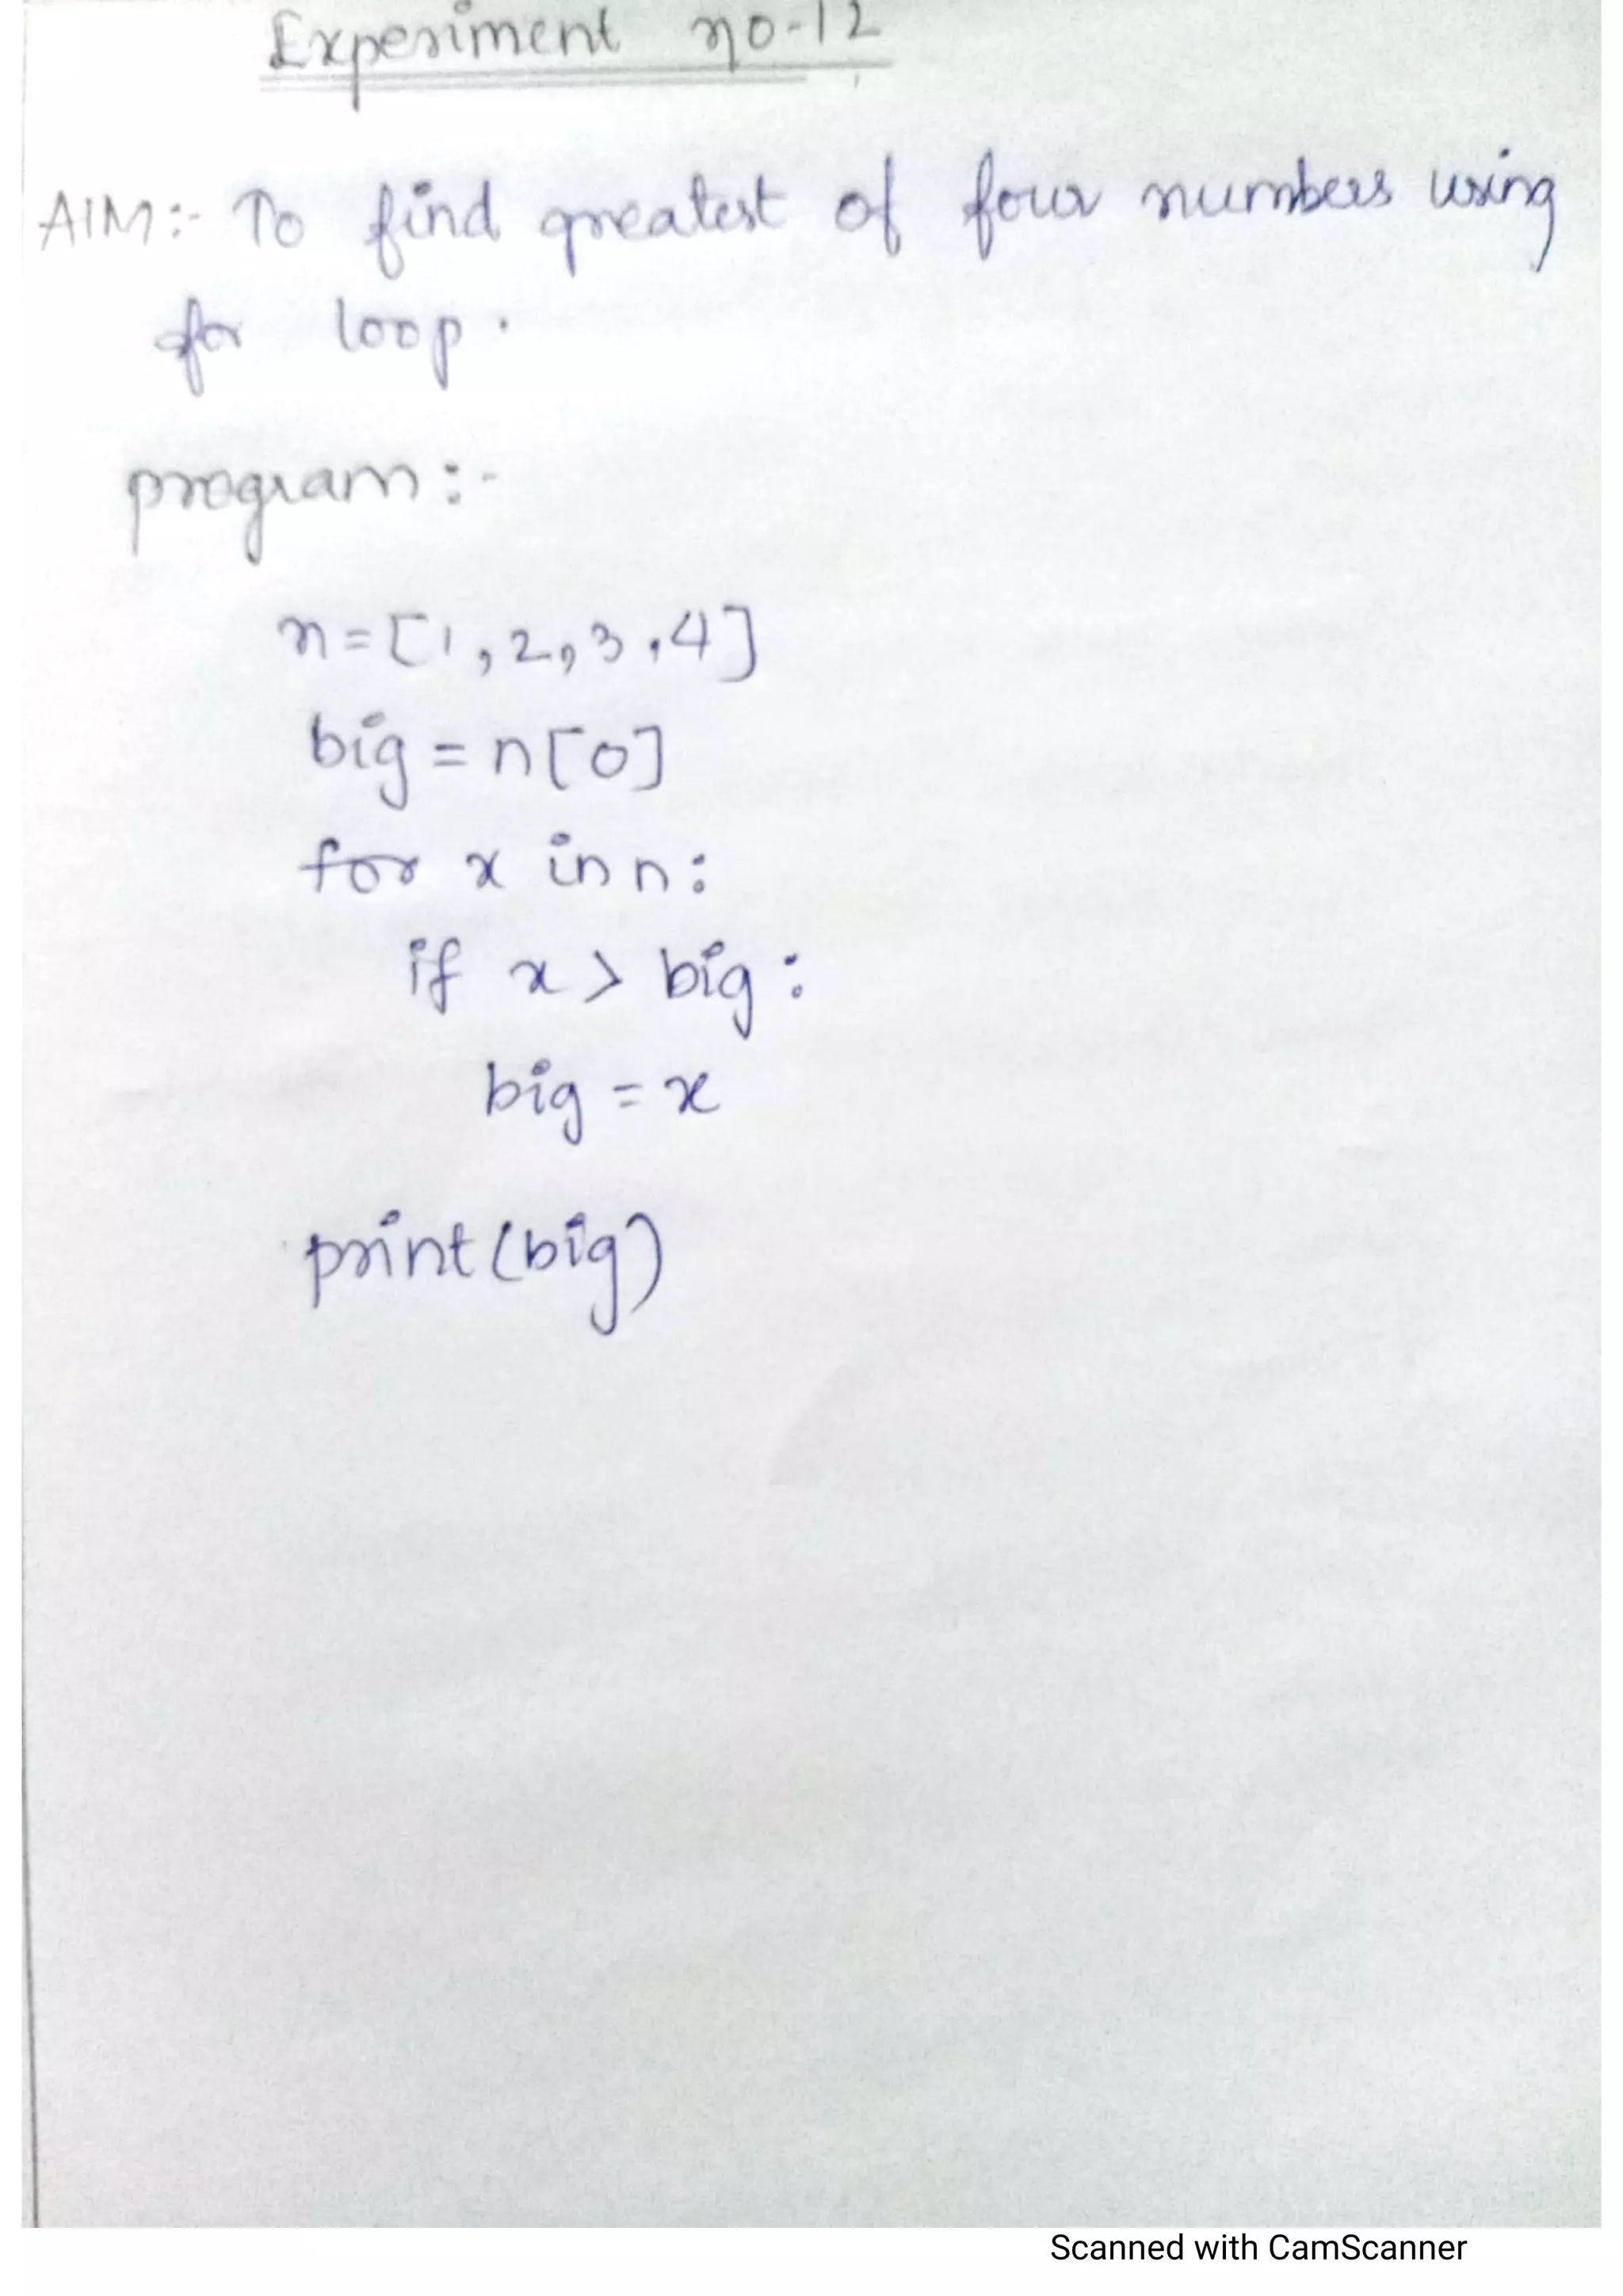 Experiment no-12
AIM:- To find greatest of four numbers using
for loop.
program:-
n=[1,2,3,4]
big=n[0]
for x in n:
if x > big:
big = x
print(big)
Scanned with CamScanner